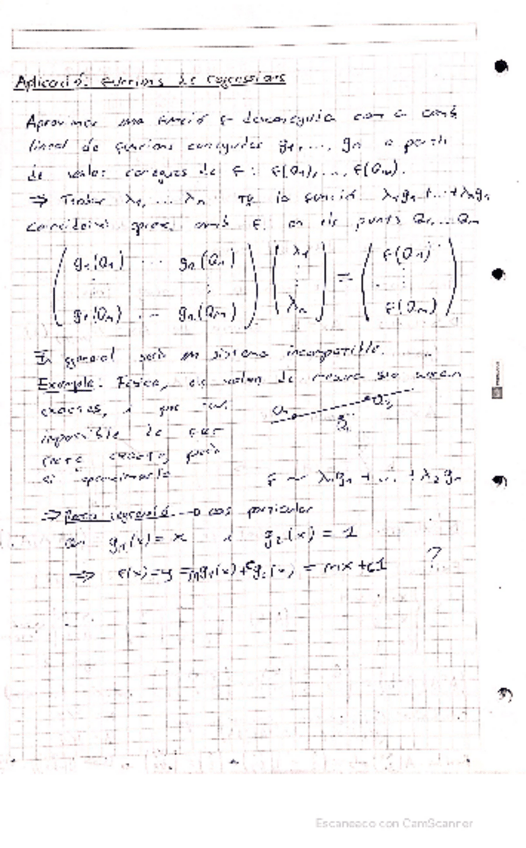 Aplicació: funcions de regressions
Aproximar una funció f desconeguda com a comb.
lineal de funcions conegudes g1, ..., gn a partir
de valors coneguts de f: f(Q1), ..., f(Qm).
⇒ Trobar λ1, ... λn tq la funció λ1g1+...+λngn
coincideixi aprox. amb f en els punts Q1...Qm
( g1(Q1) ... gn(Q1) ) ( λ1 ) = ( f(Q1) )
( g1(Qm) ... gn(Qm) ) ( λn ) ( f(Qm) )
En general serà un sistema incompatible.
Exemple: Física, els valors de mesura són
exactes, i per tant
impossible
exacte, però
si aproximarla
f ~ λ1g1 + ... + λ2gn
⇒ regressió → cas particular
on g1(x) = x i g2(x) = 1
⇒ f(x)=y=mg1(x)+cg2(x) = mx+c1 ?
Escaneado con CamScanner